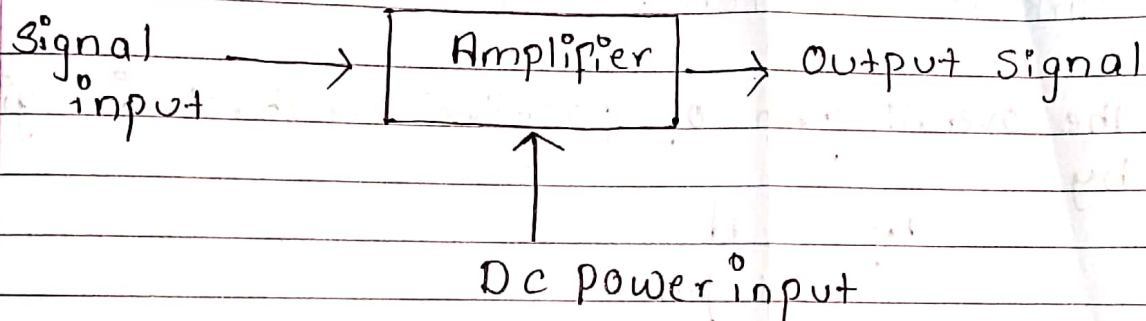 Signal
input
Amplifier
Output Signal
DC power input